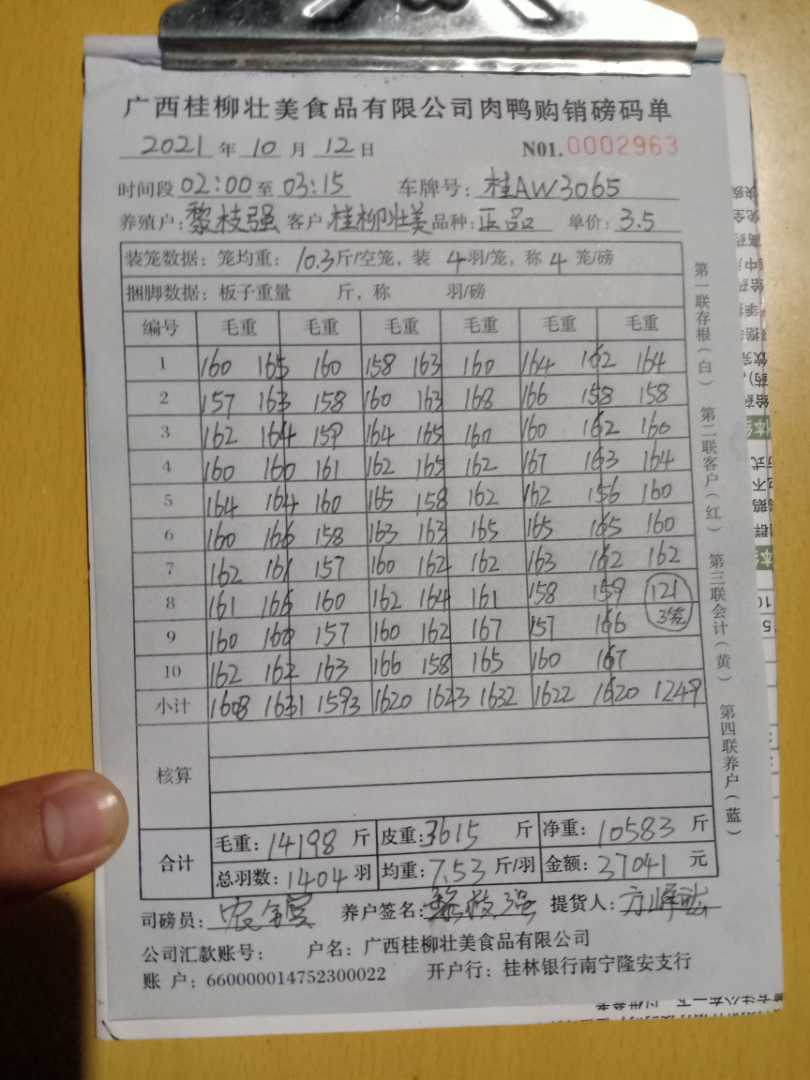 广西桂柳壮美食品有限公司肉鸭购销磅码单
2021年10月12日 N01.0002963
时间段02:00至03:15 车牌号:桂AW3065
养殖户:黎枝强 客户:桂柳壮美 品种:正品 单价:3.5
装笼数据:笼均重:10.3斤/空笼,装4羽/笼,称4笼/磅
捆脚数据:板子重量 斤,称 羽/磅
编号 毛重 毛重 毛重 毛重 毛重 毛重
1 160 165 160 158 163 160 164 162 164
2 157 163 158 160 163 168 166 158 158
3 162 164 159 164 165 160 160 162 160
4 160 160 161 162 165 162 167 163 164
5 164 164 160 165 158 162 162 156 160
6 160 166 158 163 163 165 165 165 160
7 162 161 157 160 162 162 163 162 162
8 161 166 160 162 164 161 158 159 121
9 160 160 157 160 162 167 157 166 3笼
10 162 162 163 166 158 165 160 167
小计 1608 1631 1593 1620 1623 1632 1622 1620 1249
核算
合计
毛重:14198斤 皮重:3615斤 净重:10583斤
总羽数:1404羽 均重:7.53斤/羽 金额:37041元
司磅员: 养户签名:黎枝强 提货人:
公司汇款账号: 户名:广西桂柳壮美食品有限公司
账户:660000014752300022 开户行:桂林银行南宁隆安支行
第一联存根(白) 第二联客户(红) 第三联会计(黄) 第四联养户(蓝)